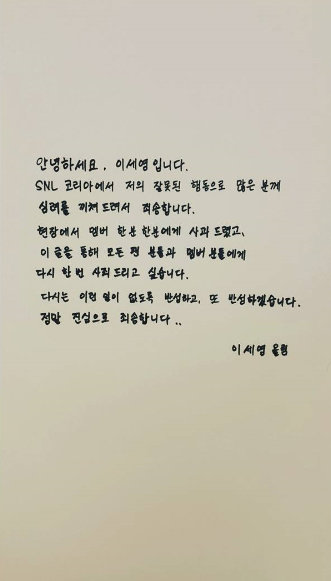 안녕하세요, 이세영입니다.
SNL 코리아에서 저의 잘못된 행동으로 많은 분께
심려를 끼쳐드려서 죄송합니다.
현장에서 멤버 한분 한분에게 사과 드렸고,
이 글을 통해 모든 팬 분들과 멤버분들에게
다시 한 번 사죄드리고 싶습니다.
다시는 이런 일이 없도록 반성하고, 또 반성하겠습니다.
정말 진심으로 죄송합니다..
이세영 올림